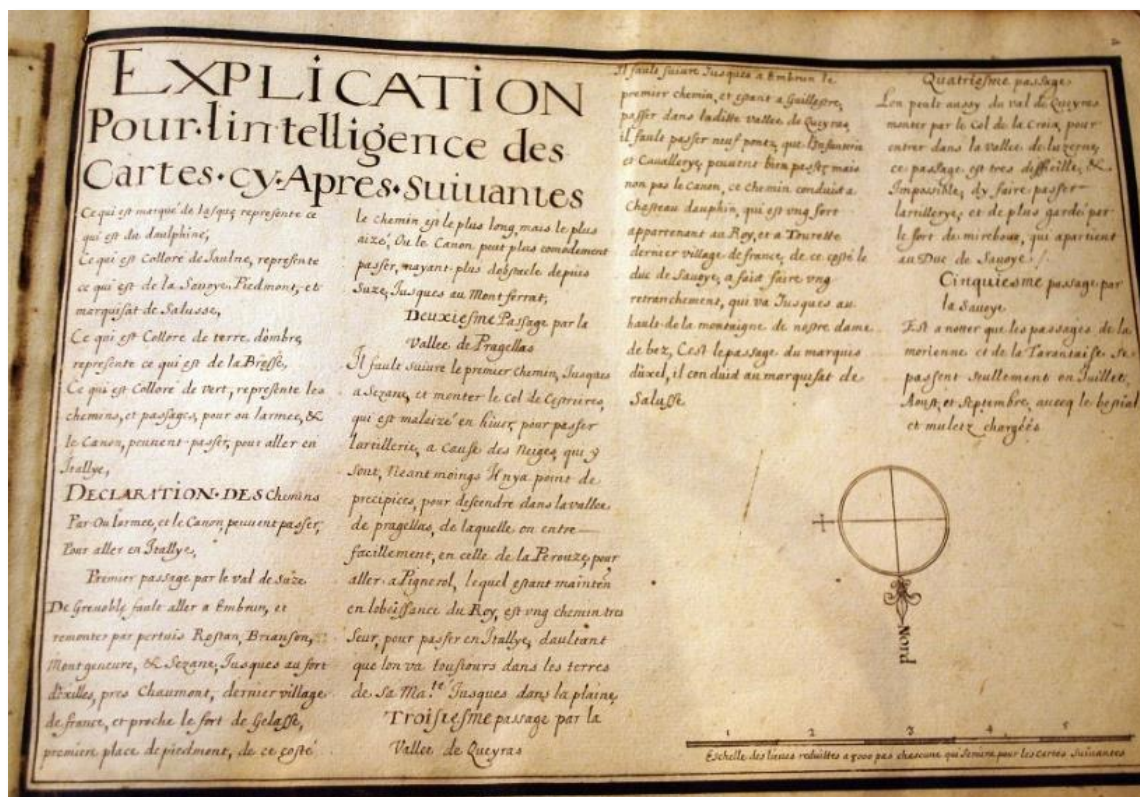 EXPLICATION
Pour·lintelligence des
Cartes·cy·Apres·suiuantes
Ce qui est marqué de represente ce
qui est du daulphiné,
Ce qui est Colloré de Jaulne, represente
ce qui est de la Sauoye, Piedmont, et
marquisat de Salusse,
Ce qui est Colloré de terre dombre,
represente ce qui est de la Bresse,
Ce qui est Colloré de vert, represente les
chemins, et passages, pour ou larmee, &
le Canon, peuuent passer, pour aller en
Itallye,
DECLARATION·DES Chemins
Par Ou larmee, et le Canon, peuuent passer,
Pour aller en Itallye,
Premier passage par le val de Suze
De Grenoble fault aller a Embrun, et
remonter par pertuis Rostan, Brianson,
Montgeneure, & Sezane, Jusques au fort
dExilles, pres Chaumont, dernier village
de france, et proche le fort de Gelasse,
premiere place de piedmont, de ce costé
le chemin est le plus long, mais le plus
aizé, Ou le Canon peut plus comodement
passer, nayant plus dobstacle depuis
Suze, Jusques au Montferrat,
Deuxiesme Passage par la
Vallee de Pragellas
Il fault suiure le premier Chemin, Jusques
a Sezane, et monter le Col de Cestrieres,
qui est malaizé en hiuer, pour passer
lartillerie, a cause des Neiges, qui y
sont, Neant moings Il nya point de
precipices, pour descendre dans la vallee
de pragellas, de laquelle on entre
facillement, en celle de la Perouze, pour
aller a Pignerol, lequel estant mainten
en lobeissance du Roy, est vng chemin tres
seur, pour passer en Itallye, daultant
que lon va tousiours dans les terres
de sa Ma.te Jusques dans la plaine,
Troisiesme passage par la
Vallee de Queyras
Il fault suiure Jusques a Embrun le
premier chemin, et estant a Guillestre,
passer dans laditte vallee de Queyras,
il faule passer neuf pontz, que linfanterie
et Cauallerye, peuuent bien passer, mais
non pas le Canon, ce chemin conduit a
Chasteau dauphin, qui est vng fort
appartenant au Roy, et a Tourette
dernier village de france, de ce costé le
duc de Sauoye, a faict faire vng
retranchement, qui va Jusques au
hault de la montaigne de nostre dame
de bez, Cest le passage du marquis
duxel, il conduid au marquisat de
Salusse
Quatriesme passage
Lon peult aussy du val de Queyras
monter par le Col de la Croix, pour
entrer dans la Vallee de luzerne,
ce passage est tres difficille, &
Impossible, dy faire passer
lartillerye, et de plus gardé par
le fort de mirebouc, qui apartient
au Duc de Sauoye
Cinquiesme passage par
la Sauoye
Est a notter que les passages de la
morienne et de la Tarantaise se
passent seullement en Juillet,
Aoust, et Septembre, auecq le bestial
et muletz chargées
Nord
1 2 3 4 5
Eschelle des lieues reduittes a pas chescune qui seruira pour les cartes suiuantes